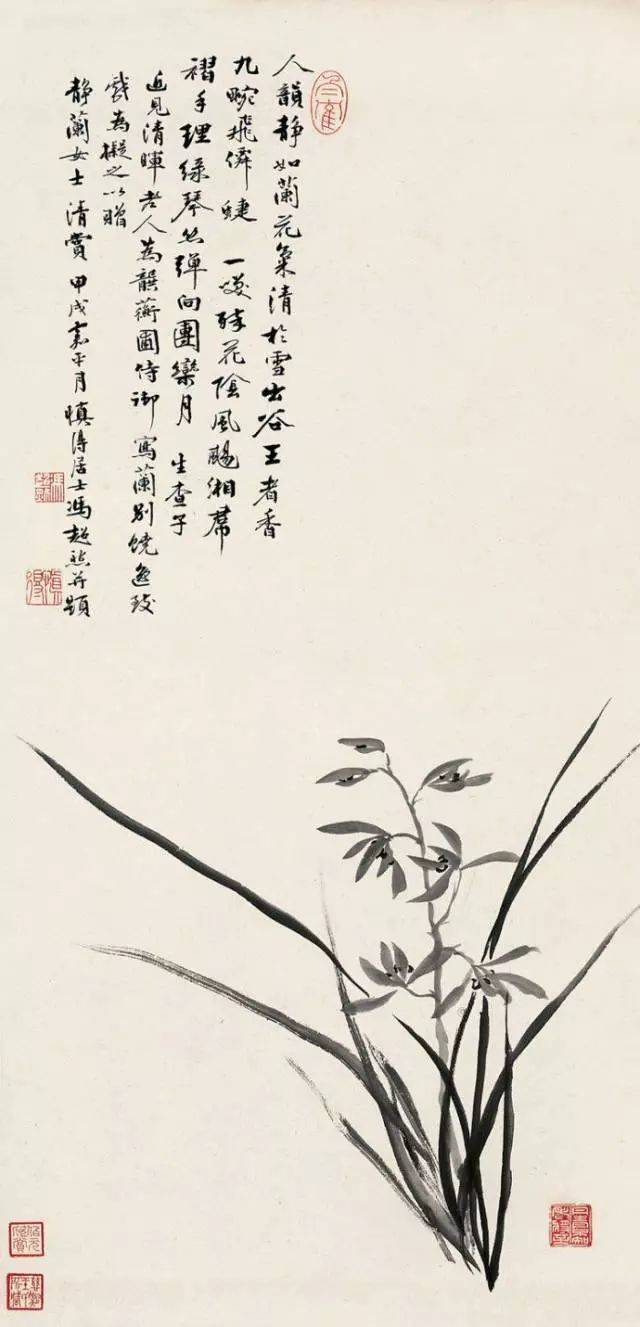 人韻静如蘭花氣清於雪出谷王者香
九畹飛僊蜨 一花陰風颺湘裙
褶手理緑琴絲彈向團欒月 生查子
近見清暉老人為龔蘅圃侍御寫蘭別饒逸致
戲為擬之以贈
静蘭女士清賞 甲戌嘉平月慎得居士馮超然并題